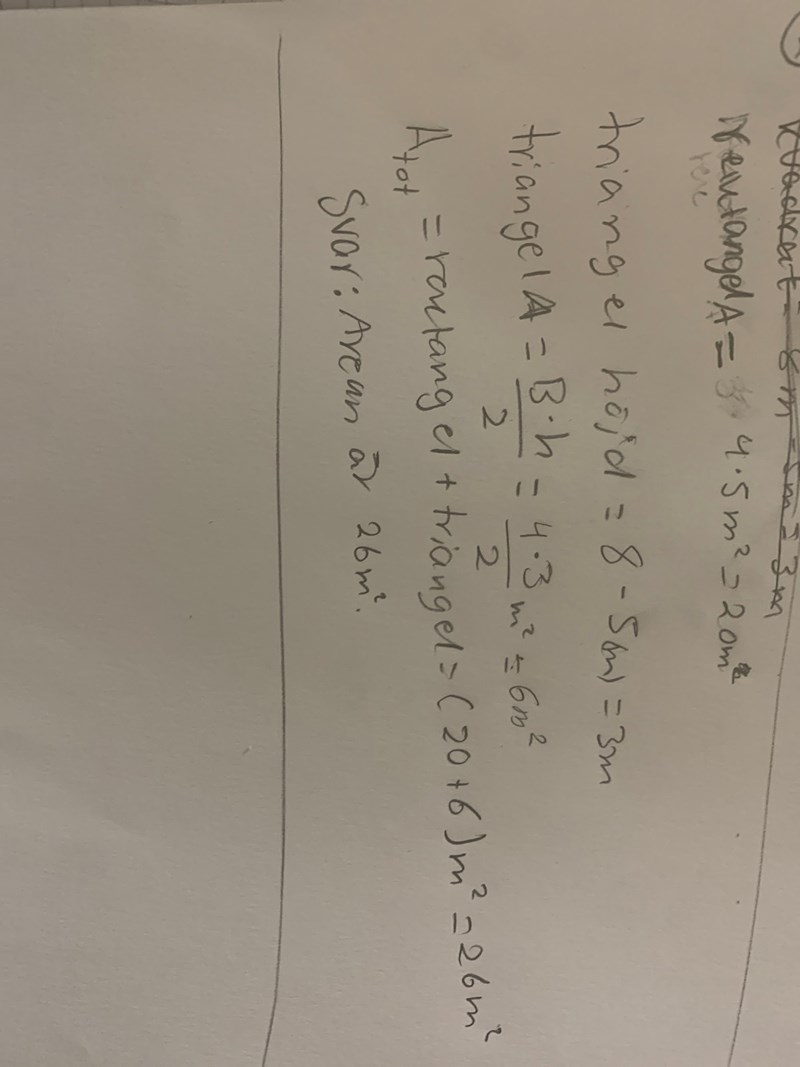 kvadrat = 8m - 5m = 3m
rektangel A = 4·5 m² = 20m²
triangel höjd = 8 - 5(m) = 3m
triangel A = B·h/2 = 4·3/2 m² = 6m²
Atot = rektangel + triangel = (20+6)m² = 26m²
Svar: Arean är 26m².